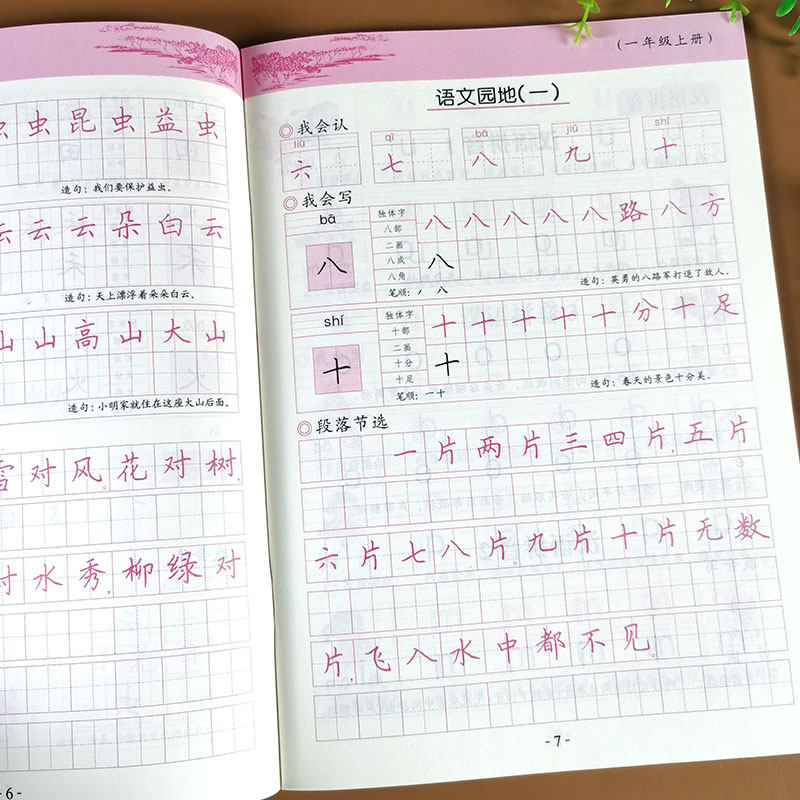 虫昆虫益虫
造句：我们要保护益虫。
云云朵白云
造句：天上漂浮着朵朵白云。
山山高山大山
造句：小明家就住在这座大山后面。
雪对风。花对树，
对水秀，柳绿对
- 6 -
（一年级上册）
语文园地（一）
◎我会认
liù qī bā jiǔ shí
六 七 八 九 十
◎我会写
bā
八
独体字
八部
二画
八成
八角
八八八八八路八方
八
笔顺：丿 八
造句：英勇的八路军打退了敌人。
shí
十
独体字
十部
二画
十分
十足
十十十十十分十足
十
笔顺：一十
造句：春天的景色十分美。
◎段落节选
一片两片三四片，五片
六片七八片。九片十片无数
片，飞入水中都不见。
- 7 -